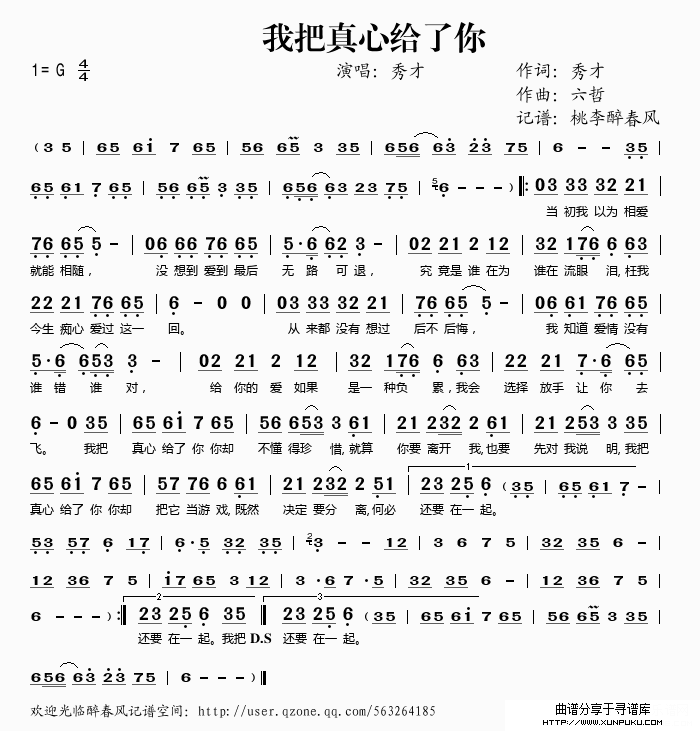 我把真心给了你
1= G 4/4 演唱：秀才 作词：秀才
作曲：六哲
记谱：桃李醉春风
( 3 5 | 65 6i 7 65 | 56 65 3 35 | 656 63 23 75 | 6 - - 35 |
65 61 7 65 | 56 65 3 35 | 656 63 23 75 | 6 - - - ) ‖: 03 33 32 21 |
当 初我 以为 相爱
76 65 5 - | 06 66 76 65 | 5·6 62 3 - | 02 21 2 12 | 32 176 6 63 |
就能 相随， 没 想到 爱到 最后 无 路 可 退， 究 竟是 谁 在为 谁在 流眼 泪,枉我
22 21 76 65 | 6 - 0 0 | 03 33 32 21 | 76 65 5 - | 06 61 76 65 |
今生 痴心 爱过 这一 回。 从 来都 没有 想过 后不 后悔， 我 知道 爱情 没有
5·6 653 3 - | 02 21 2 12 | 32 176 6 63 | 22 21 7·6 65 |
谁 错 谁 对， 给 你的 爱 如果 是一 种负 累,我会 选择 放手 让 你 去
6 - 0 35 | 65 6i 7 65 | 56 653 3 61 | 21 232 2 61 | 21 253 3 35 |
飞。 我把 真心 给了 你 你却 不懂 得珍 惜,就算 你要 离开 我,也要 先对 我说 明,我把
65 6i 7 65 | 57 76 6 61 | 21 232 2 51 | 1 23 25 6 (35 | 65 61 7 - |
真心 给了 你 你却 把它 当游 戏,既然 决定 要分 离,何必 还要 在一 起。
53 57 6 17 | 6·5 32 35 | 3 - - 12 | 3 6 7 5 | 32 35 6 - |
12 36 7 5 | i7 65 3 12 | 3 ·6 7 ·5 | 32 35 6 - |
6 - - - ) :‖ 2 23 25 6 35 ‖ 3 23 25 6 (35 | 65 61 7 65 | 56 65 3 35 |
还要 在一 起。我把 D.S 还要 在一 起。
656 63 23 75 | 6 - - - ) ‖
欢迎光临醉春风记谱空间：http://user.qzone.qq.com/563264185
曲谱分享于寻谱库
HTTP://WWW.XUNPUKU.COM